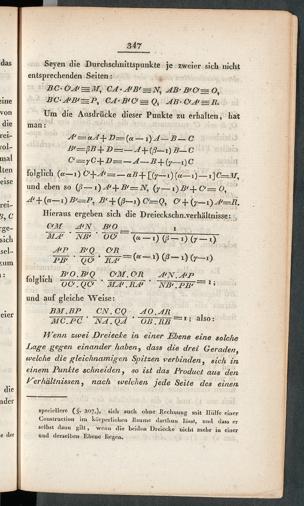 347
Seyen die Durchschnittspunkte je zweier sich nicht
entsprechenden Seiten:
BC·C'A'≡M, CA·A'B'≡N, AB·B'C'≡O,
BC·A'B'≡P, CA·B'C'≡Q, AB·C'A'≡R.
Um die Ausdrücke dieser Punkte zu erhalten, hat
man:
A'=αA+D=(α−1)A−B−C
B'=βB+D=−A+(β−1)B−C
C'=γC+D=−A−B+(γ−1)C
folglich (α−1)C'+A'=−αB+[(γ−1)(α−1)−1]C≡M,
und eben so (β−1)A'+B'≡N, (γ−1)B'+C'≡O,
A'+(α−1)B'≡P, B'+(β−1)C'≡Q, C'+(γ−1)A'≡R.
Hieraus ergeben sich die Dreiecksschn.verhältnisse:
C'M/MA' · A'N/NB' · B'O/OC' = 1/((α−1)(β−1)(γ−1))
A'P/PB' · B'Q/QC' · C'R/RA' = (α−1)(β−1)(γ−1)
folglich B'O.B'Q/OC'.QC' · C'M.C'R/MA'.RA' · A'N.A'P/NB'.PB' = 1;
und auf gleiche Weise:
BM.BP/MC.PC · CN.CQ/NA.QA · AO.AR/OB.RB = 1; also:
Wenn zwei Dreiecke in einer Ebene eine solche
Lage gegen einander haben, dass die drei Geraden,
welche die gleichnamigen Spitzen verbinden, sich in
einem Punkte schneiden, so ist das Product aus den
Verhältnissen, nach welchen jede Seite des einen
speciellere (§. 207.), sich auch ohne Rechnung mit Hülfe einer
Construction im körperlichen Raume darthun lässt, und dass er
selbst dann gilt, wenn die beiden Dreiecke nicht mehr in einer
und derselben Ebene liegen.